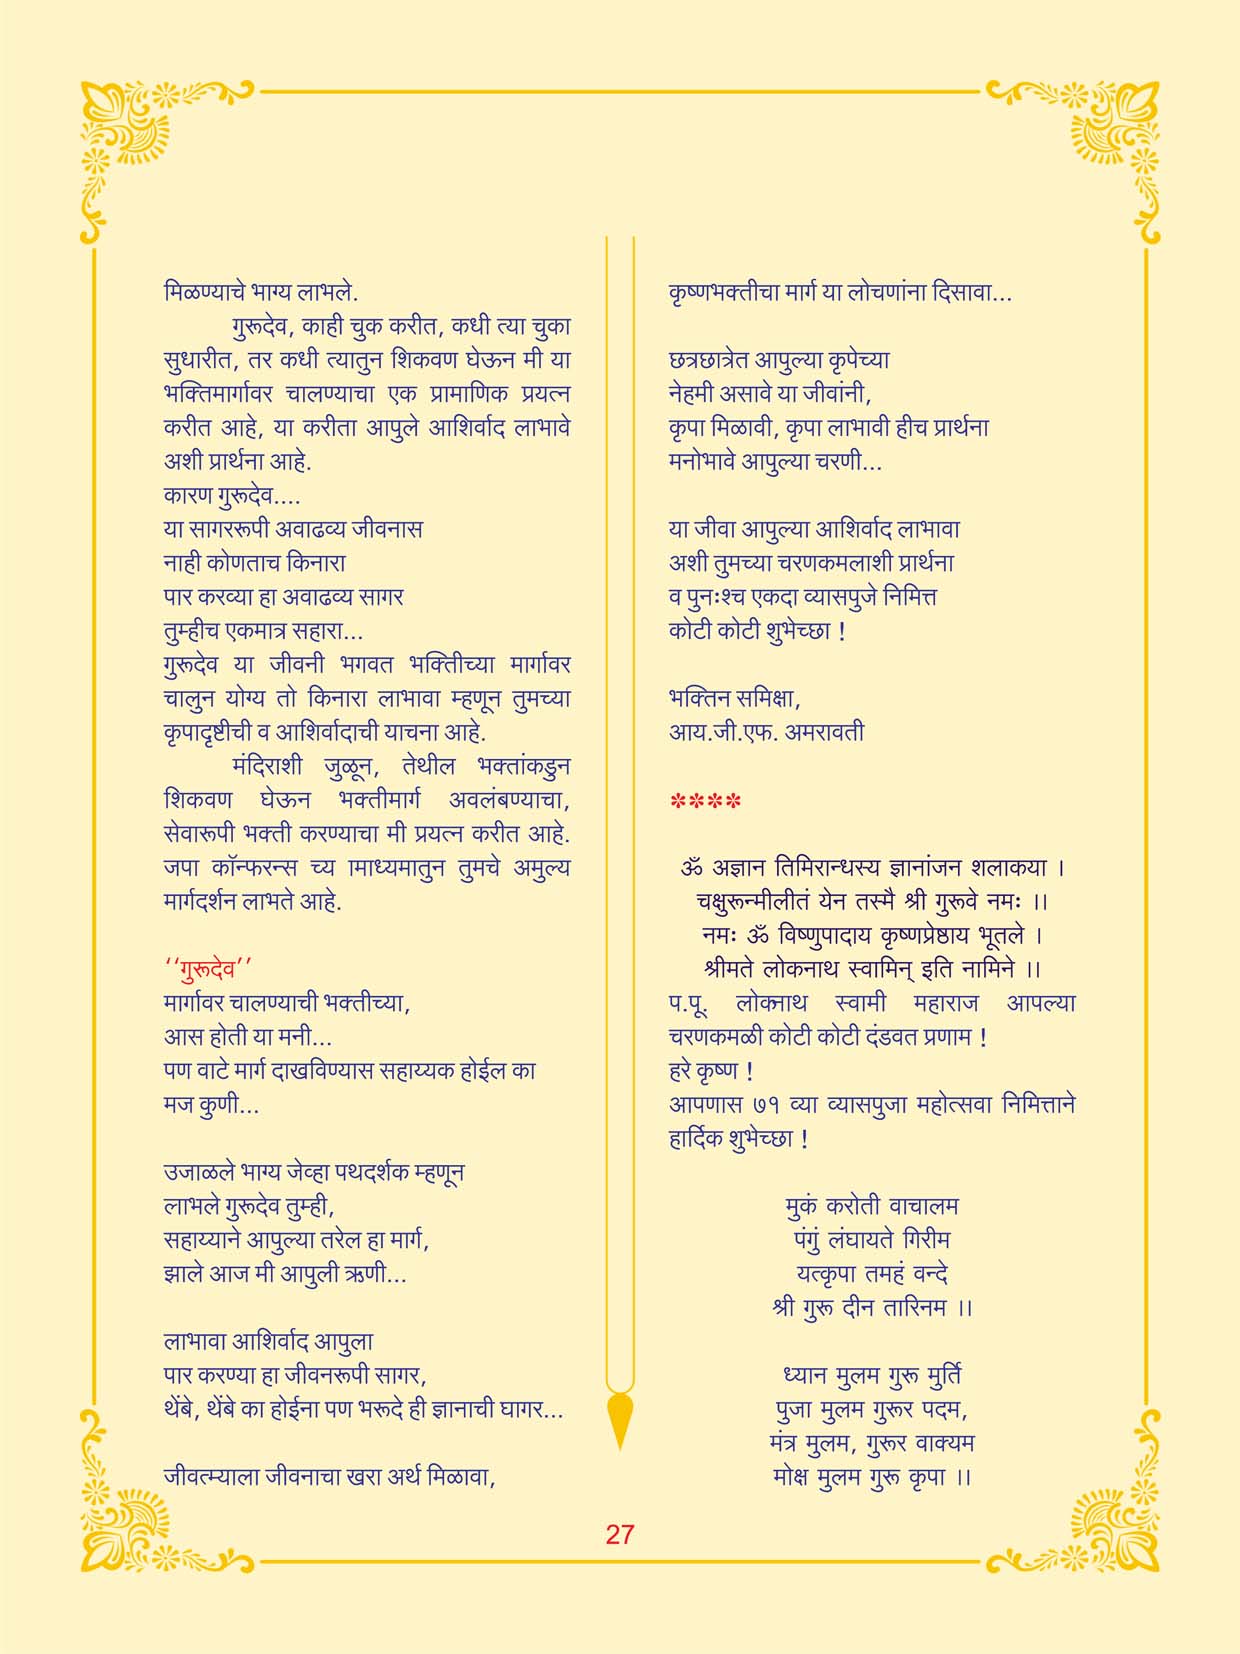 मिळण्याचे भाग्य लाभले.
गुरूदेव, काही चुक करीत, कधी त्या चुका
सुधारीत, तर कधी त्यातुन शिकवण घेऊन मी या
भक्तिमार्गावर चालण्याचा एक प्रामाणिक प्रयत्न
करीत आहे, या करीता आपुले आशिर्वाद लाभावे
अशी प्रार्थना आहे.
कारण गुरूदेव....
या सागररूपी अवाढव्य जीवनास
नाही कोणताच किनारा
पार करव्या हा अवाढव्य सागर
तुम्हीच एकमात्र सहारा...
गुरूदेव या जीवनी भगवत भक्तिीच्या मार्गावर
चालुन योग्य तो किनारा लाभावा म्हणून तुमच्या
कृपादृष्टीची व आशिर्वादाची याचना आहे.
मंदिराशी जुळून, तेथील भक्तांकडुन
शिकवण घेऊन भक्तीमार्ग अवलंबण्याचा,
सेवारूपी भक्ती करण्याचा मी प्रयत्न करीत आहे.
जपा कॉन्फरन्स च्य ामाध्यमातुन तुमचे अमुल्य
मार्गदर्शन लाभते आहे.
‘‘गुरूदेव’’
मार्गावर चालण्याची भक्तीच्या,
आस होती या मनी...
पण वाटे मार्ग दाखविण्यास सहाय्यक होईल का
मज कुणी...
उजाळले भाग्य जेव्हा पथदर्शक म्हणून
लाभले गुरूदेव तुम्ही,
सहाय्याने आपुल्या तरेल हा मार्ग,
झाले आज मी आपुली ऋणी...
लाभावा आशिर्वाद आपुला
पार करण्या हा जीवनरूपी सागर,
थेंबे, थेंबे का होईना पण भरूदे ही ज्ञानाची घागर...
जीवत्म्याला जीवनाचा खरा अर्थ मिळावा,
कृष्णभक्तीचा मार्ग या लोचणांना दिसावा...
छत्रछात्रेत आपुल्या कृपेच्या
नेहमी असावे या जीवांनी,
कृपा मिळावी, कृपा लाभावी हीच प्रार्थना
मनोभावे आपुल्या चरणी...
या जीवा आपुल्या आशिर्वाद लाभावा
अशी तुमच्या चरणकमलाशी प्रार्थना
व पुनःश्च एकदा व्यासपुजे निमित्त
कोटी कोटी शुभेच्छा !
भक्तिन समिक्षा,
आय.जी.एफ. अमरावती
****
ॐ अज्ञान तिमिरान्धस्य ज्ञानांजन शलाकया ।
चक्षुरून्मीलीतं येन तस्मै श्री गुरूवे नमः ।।
नमः ॐ विष्णुपादाय कृष्णप्रेष्ठाय भूतले ।
श्रीमते लोकनाथ स्वामिन् इति नामिने ।।
प.पू. लोकनाथ स्वामी महाराज आपल्या
चरणकमळी कोटी कोटी दंडवत प्रणाम !
हरे कृष्ण !
आपणास ७१ व्या व्यासपुजा महोत्सवा निमित्ताने
हार्दिक शुभेच्छा !
मुकं करोती वाचालम
पंगुं लंघायते गिरीम
यत्कृपा तमहं वन्दे
श्री गुरू दीन तारिनम ।।
ध्यान मुलम गुरू मुर्ति
पुजा मुलम गुरूर पदम,
मंत्र मुलम, गुरूर वाक्यम
मोक्ष मुलम गुरू कृपा ।।
27